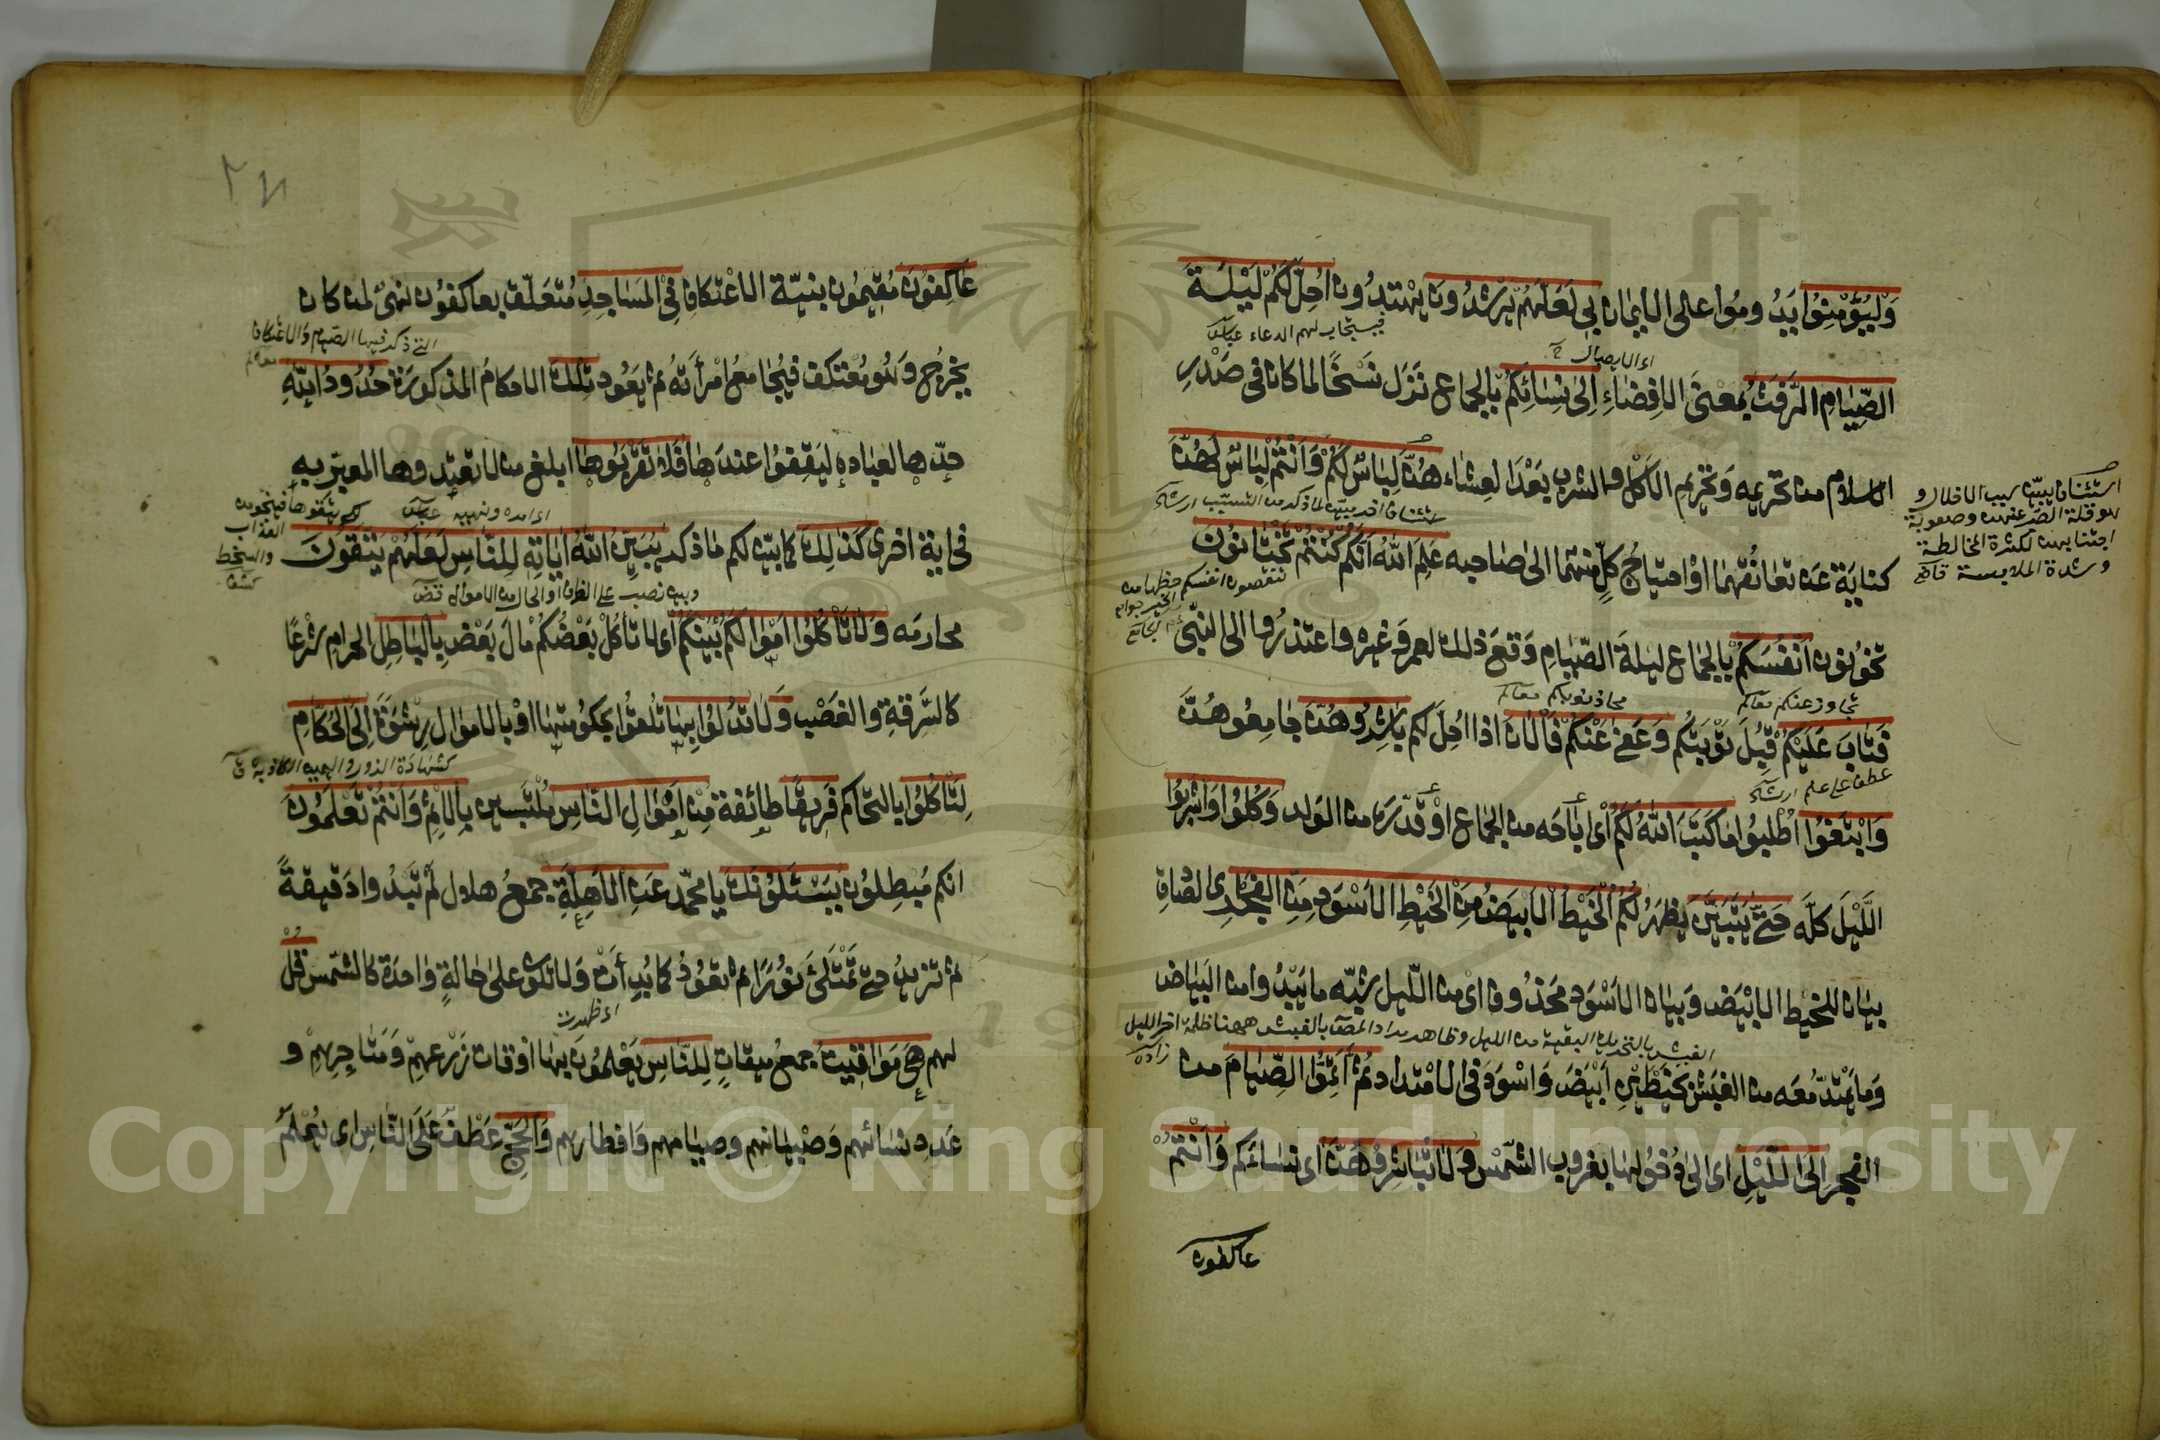 وَلْيُؤْمِنُوا يَدُومُوا على الايمان بِي لَعَلَّهُمْ يَرْشُدُونَ يهتدون اُحِلَّ لَكُمْ لَيْلَةَ
فيستجاب لهم الدعاء
الصِّيَامِ الرَّفَثُ بمعنى الافضاء اِلى نِسَائِكُمْ بالجماع نزل نسخا لما كان فى صدر
الاسلام من تحريمه وتحريم الاكل والشرب بعد العشاء هُنَّ لِبَاسٌ لَكُمْ وَاَنْتُمْ لِبَاسٌ لَهُنَّ
استئناف يبين سبب الاحلال و
هو قلة الصبر عنهن وصعوبة
اجتنابهن لكثرة المخالطة
وشدة الملابسة
كناية عن تعانقهما او احتياج كل منهما الى صاحبه عَلِمَ اللّٰهُ اَنَّكُمْ كُنْتُمْ تَخْتَانُونَ
تخونون اَنْفُسَكُمْ بالجماع ليلة الصيام وقع ذلك لعمر وغيره واعتذروا الى النبي
تجاوز عنكم
محا ذنوبكم
فَتَابَ عَلَيْكُمْ قبل توبتكم وَعَفَى عَنْكُمْ فَالْانَ اذا احل لكم بَاشِرُوهُنَّ جامعوهن
وَابْتَغُوا اطلبوا مَا كَتَبَ اللّٰهُ لَكُمْ اى اباحه من الجماع او قدره من الولد وَكُلُوا وَاشْرَبُوا
الليل كله حَتَّى يَتَبَيَّنَ يظهر لَكُمُ الْخَيْطُ الْاَبْيَضُ مِنَ الْخَيْطِ الْاَسْوَدِ مِنَ الْفَجْرِ اى الصادق
بيان للخيط الابيض وبيان الاسود محذوف اى من الليل شبه ما يبدو من البياض
وما يمتد معه من الغبش بخيطين ابيض واسود فى الامتداد ثُمَّ اَتِمُّوا الصِّيَامَ من
الفجر اِلَى اللَّيْلِ اى الى دخولها بغروب الشمس وَلَا تُبَاشِرُوهُنَّ اى نساءكم وَاَنْتُمْ
عاكفون
عَاكِفُونَ مقيمون بنية الاعتكاف فِى الْمَسَاجِدِ متعلق بعاكفون نهى لمن كان
التى ذكر فيها الصيام والاعتكاف
يخرج وهو معتكف فيجامع امرأته ثم يعود تِلْكَ الاحكام المذكورة حُدُودُ اللّٰهِ
حدّها لعباده ليقفوا عندها فَلَا تَقْرَبُوهَا ابلغ من لا تعتدوها المعبر به
فى اية اخرى كَذٰلِكَ كما بين لكم ما ذكر يُبَيِّنُ اللّٰهُ اٰيَاتِهِ لِلنَّاسِ لَعَلَّهُمْ يَتَّقُونَ
محارمه وَلَا تَأْكُلُوا اَمْوَالَكُمْ بَيْنَكُمْ اى لا تأكل بعضكم مال بعض بِالْبَاطِلِ الحرام شرعا
كالسرقة والغصب وَلَا تُدْلُوا بِهَا تلقوا بحكومتها او بالاموال رشوة اِلَى الْحُكَّامِ
كشهادة الزور واليمين الكاذبة
لِتَأْكُلُوا بالتحاكم فَرِيقًا طائفة مِنْ اَمْوَالِ النَّاسِ ملتبسين بِالْاِثْمِ وَاَنْتُمْ تَعْلَمُونَ
انكم مبطلون يَسْئَلُونَكَ يا محمد عَنِ الْاَهِلَّةِ جمع هلال لم تبدوا دقيقة
ثم تزيد حتى تمتلئ نورا ثم تعود كما بدأت ولا تكون على حالة واحدة كالشمس قُلْ
اى ظهرت
لهم هِيَ مَوَاقِيتُ جمع ميقات لِلنَّاسِ يعلمون بها اوقات زرعهم ومتاجرهم و
عدد نسائهم وصيامهم وافطارهم وَالْحَجِّ عطف على الناس اى يعلم
Copyright © King Saud University